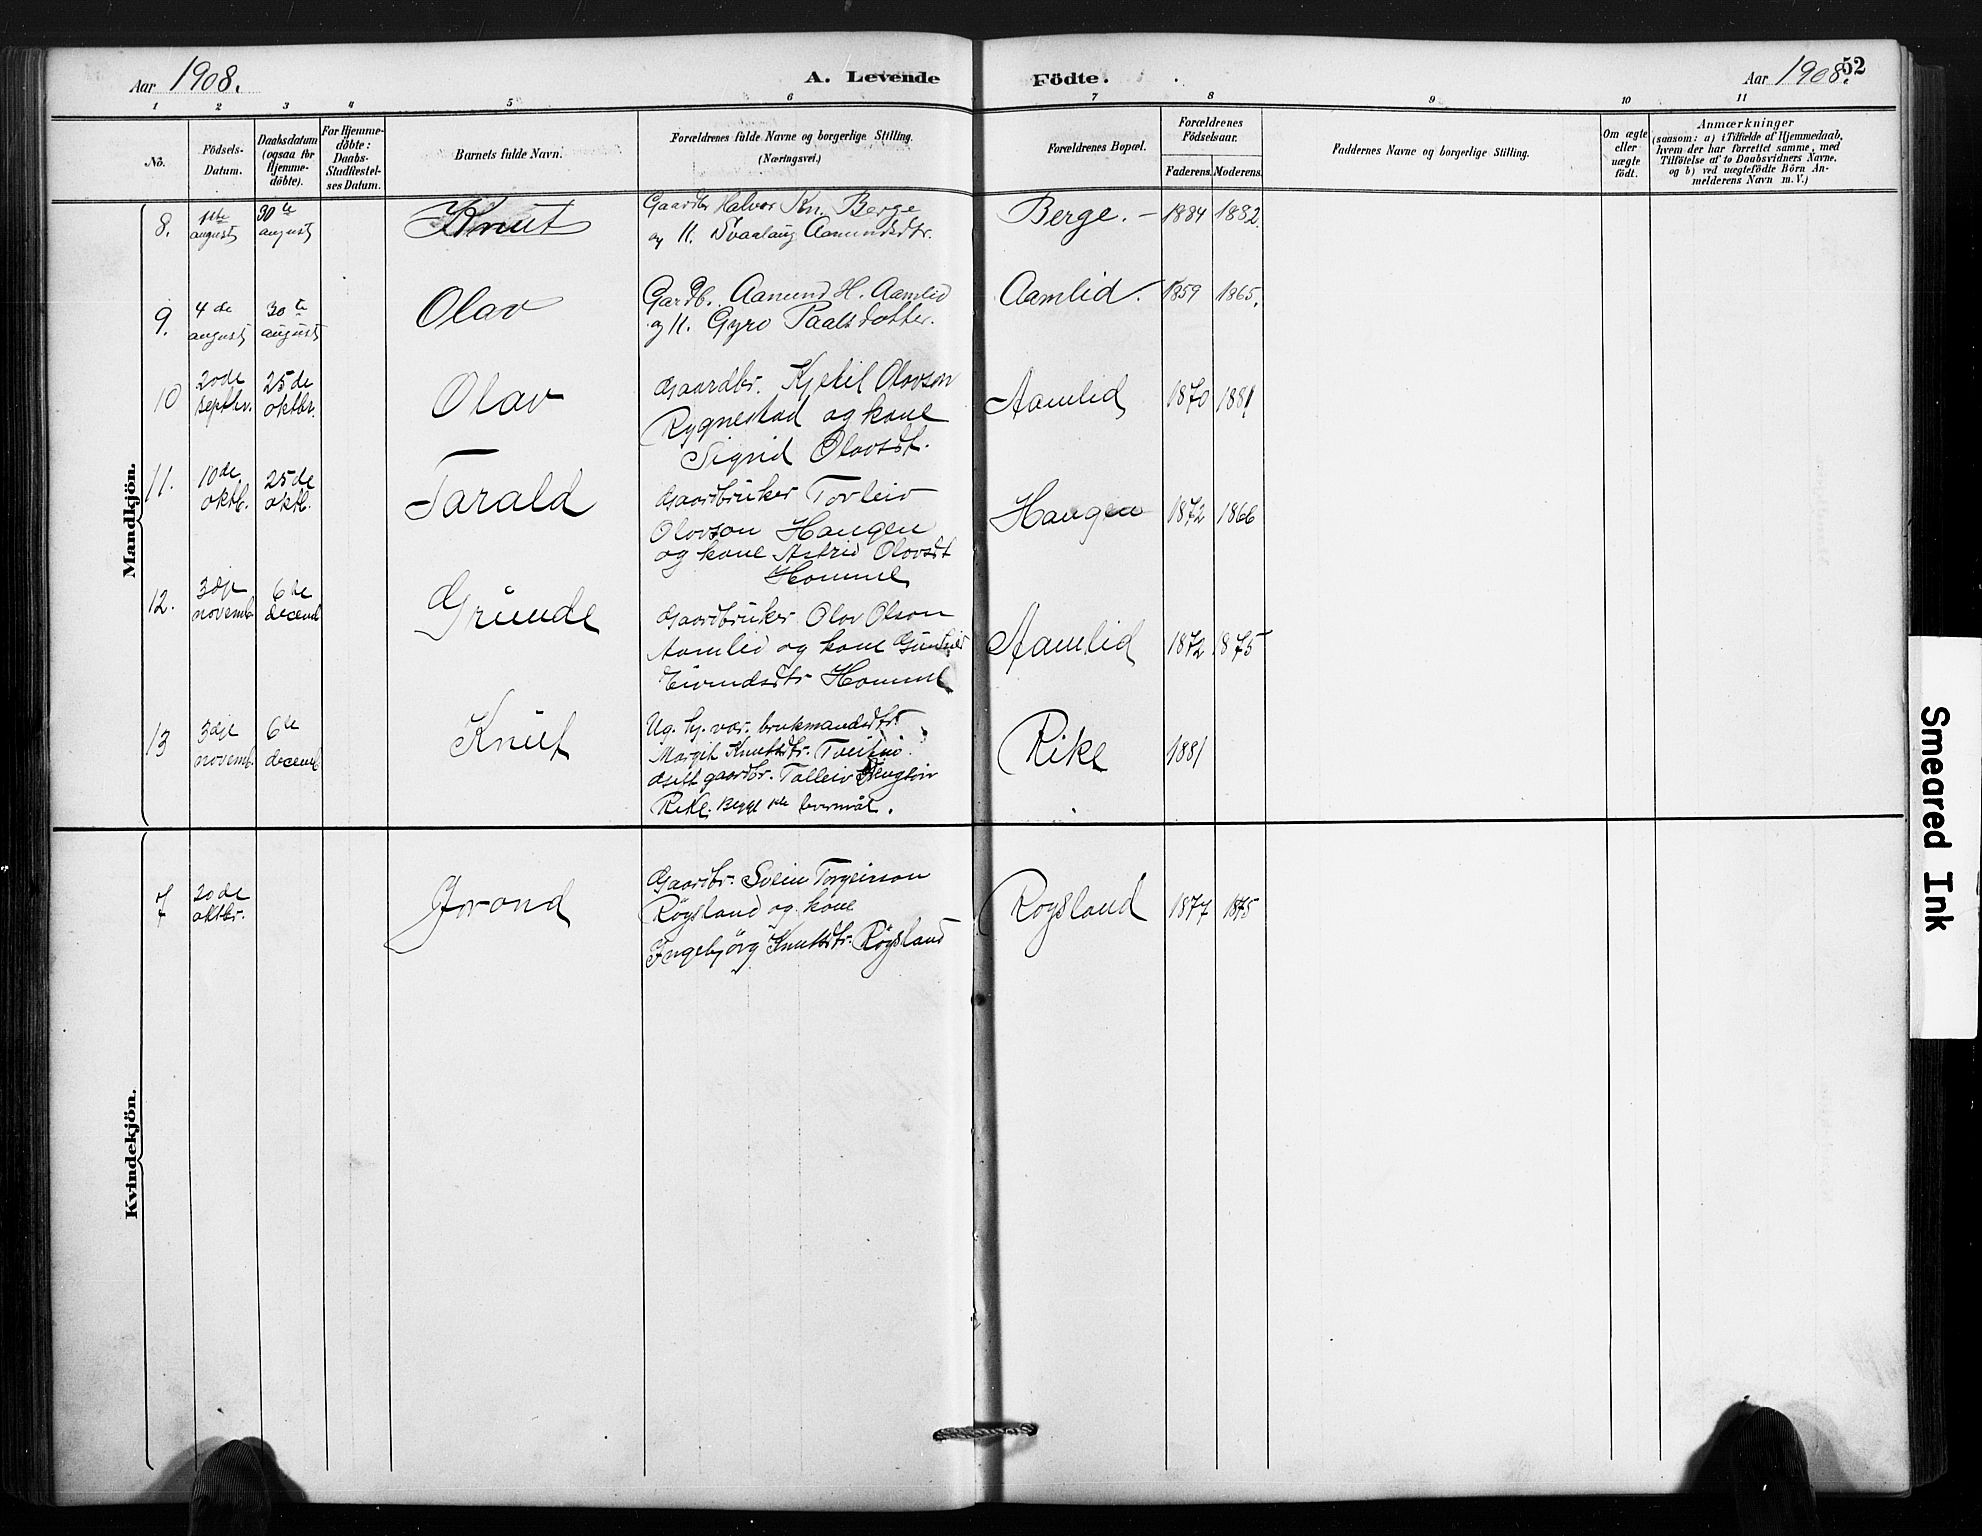 Aar 1908.
A. Levende Födte.
Aar 1908.
52
1 2 3 4 5 6 7 8 9 10 11
No.
Födsels-
Datum.
Daabsdatum
(ogsaa for
Hjemme-
döbte).
For Hjemme-
döbte:
Daabs-
Stadfæstel-
ses Datum.
Barnets fulde Navn.
Forældrenes fulde Navne og borgerlige Stilling.
(Næringsvei.)
Forældrenes Bopæl.
Forældrenes
Födselsaar.
Faderens. Moderens.
Faddernes Navne og borgerlige Stilling.
Om ægte
eller
uægte
födt.
Anmærkninger
(saasom: a) i Tilfælde af Hjemmedaab,
hvem der har forrettet samme, med
Tilföielse af to Daabsvidners Navne.
og b) ved uægtefödte Börn An-
melderens Navn m. V.)
Mandkjön.
8. 1ste august 30te august Knut
Gaardbr Halvor Kn. Berge
og H. Svaalaug Aamundsdtr.
Berge. – 1884 1882.
9. 4de august 30te august Olav
Gardb. Aamund H. Aamlid
og H. Gyro Paalsdotter.
Aamlid. 1859 1865.
10 20de septbr. 25de oktbr. Olav
Gaardbr. Kjetil Olavson
Rygnestad og kone
Sigrid Olavsdt.
Aamlid 1870 1881
11. 10de oktb. 25de oktb. Tarald
Gaardbruker Torleiv
Olavson Haugen
og kone Astrid Olavsdt
Homme
Haugen 1872 1866
12. 3dje novemb. 6te decemb Grunde
Gaardbruker Olav Olson
Aamlid og kone
Eivindsdtr Homme
Aamlid 1872 1875
13 3dje novemb. 6te decemb Knut
Ug. hj. vær. brukmandsdtr.
Margit Knutsdtr.
gaardbr. Talleiv
Rike. Begge 1ste leiermål.
Rike 1881
Kvindekjön.
7 20de oktbr. Jorond
Gaardbr. Svein Torgeirson
Røysland og kone
Ingebjørg Knutsdtr. Røysland
Roysland 1877 1875
Smeared Ink